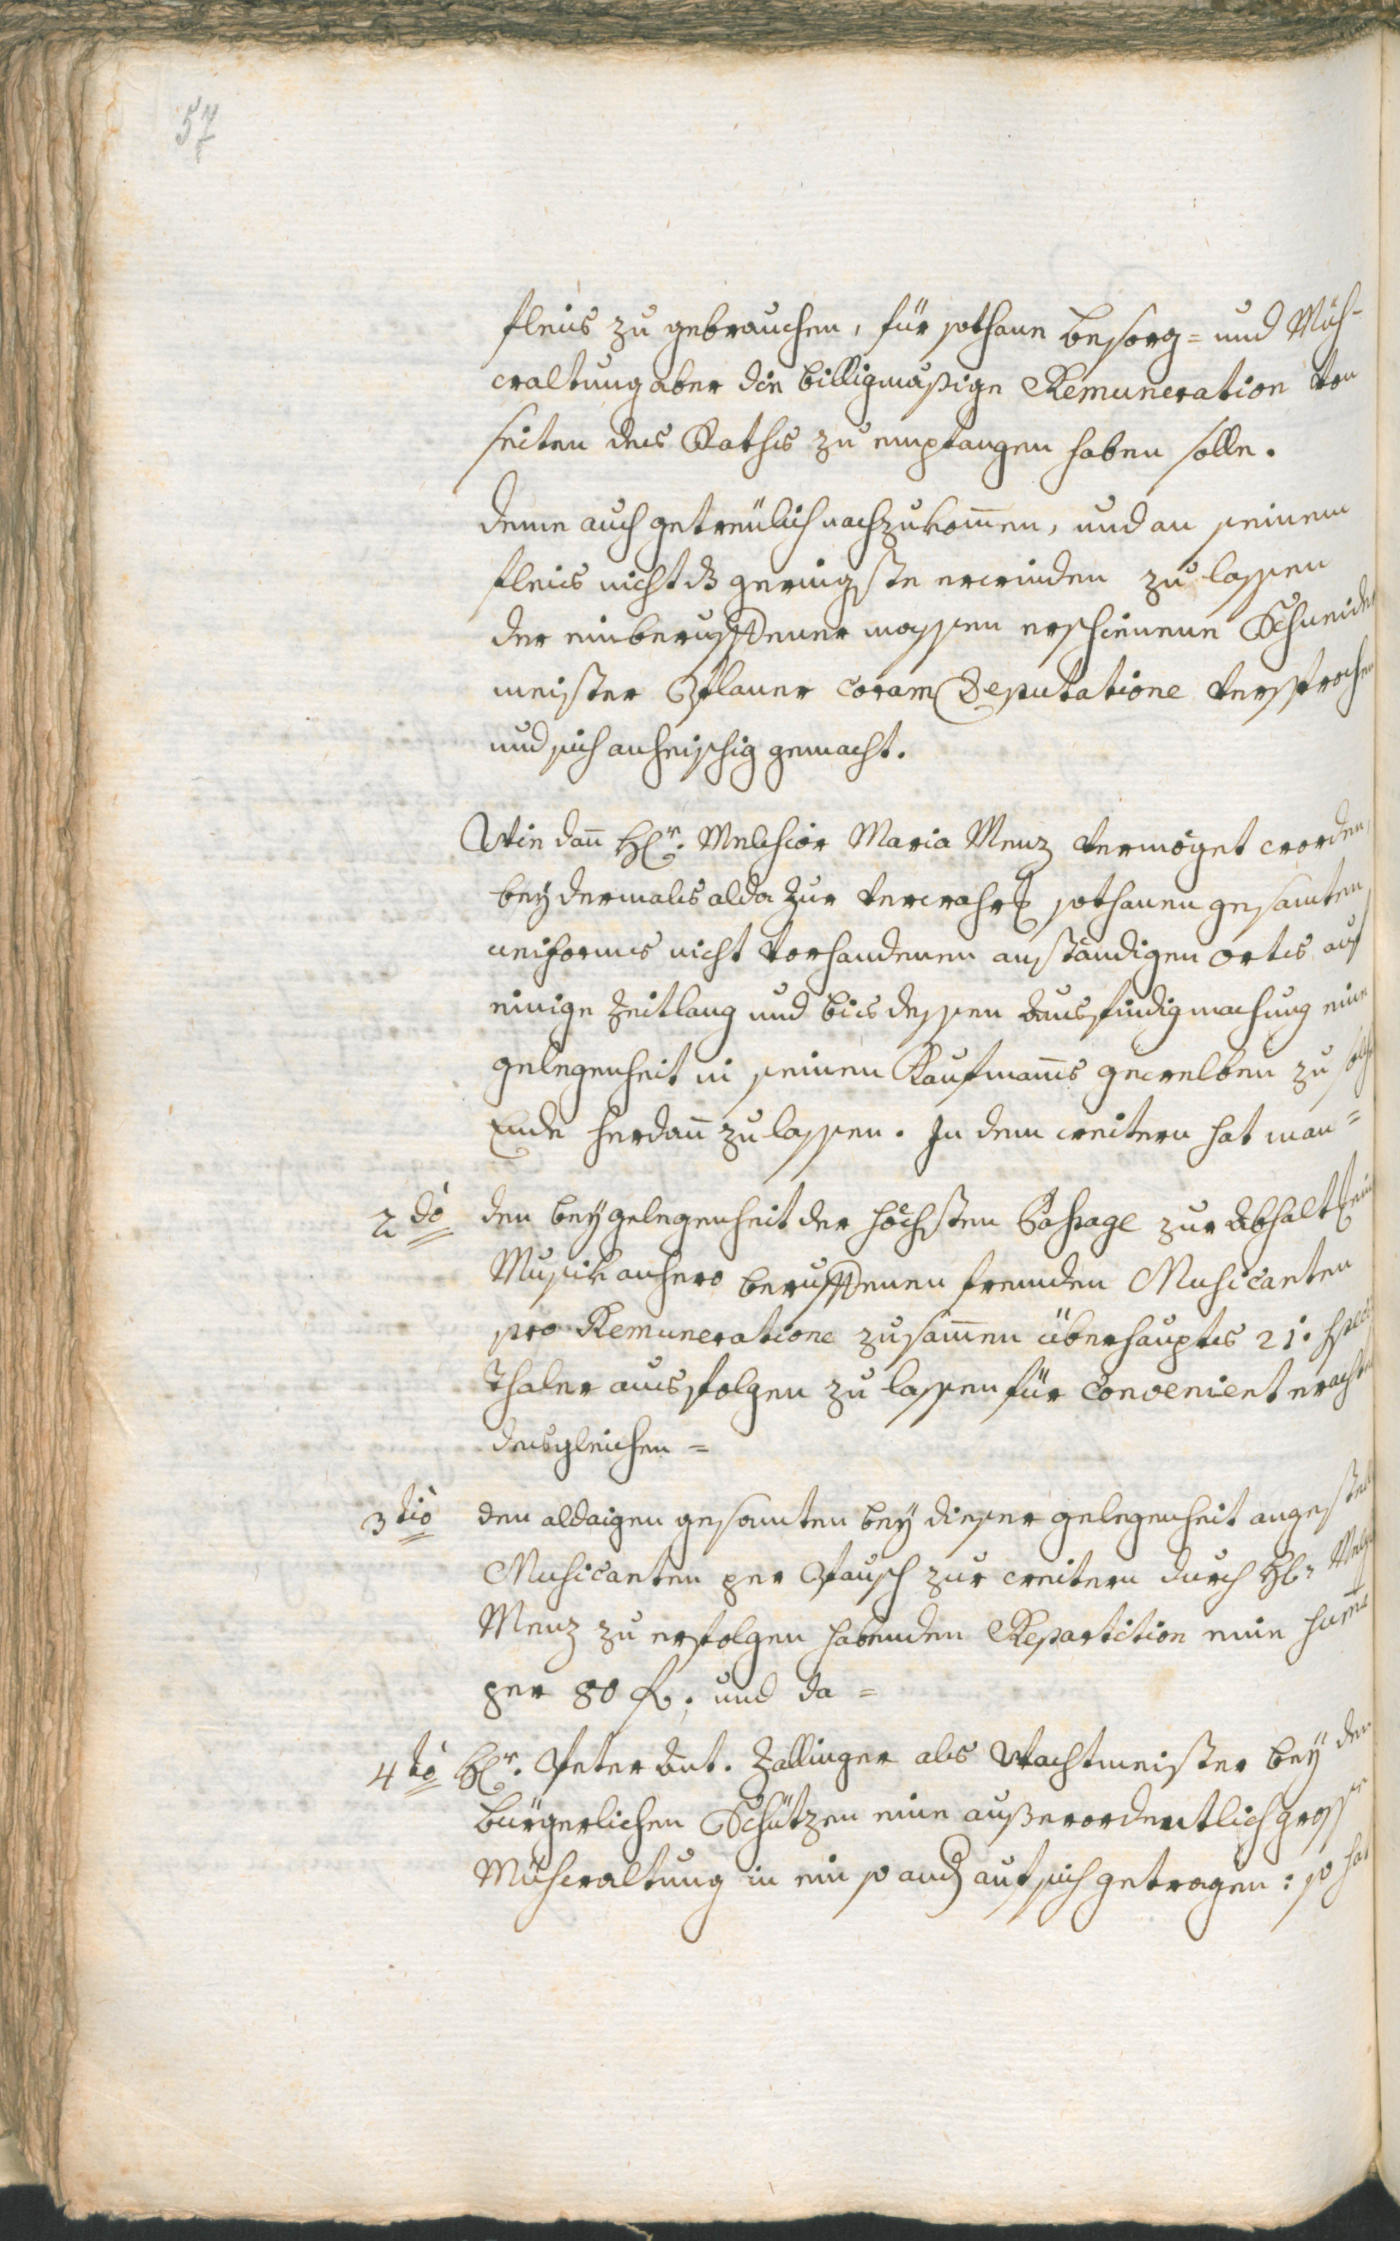 57
fleis zu gebrauchen, für sothane besorg= und Müh-
waltung aber die billigmäßige Remuneration von
seiten des Raths zu empfangen haben solle.
deme auch getreulich nachzukom̅en, und an seinem
fleis nicht dz geringste erwinden zu lassen
der einberuffener massen erschienene Schneider
meister Pflauer coram Deputatione versprochen
und sich anheischig gemacht.
Wie dan̅ H:r Melchior Maria Menz vermöget worden,
bey dermals alda zur verwahrung sothanen gesamten
uniforms nicht vorhandenen anständigen orts auf
einige Zeitlang und bis dessen ausfindigmachung eine
gelegenheit in seinen Kaufman̅s gewelben zu solchem
Ende herdan̅ zu lassen. In dem weitern hat man=
2do den bey gelegenheit der höchsten Passage zur abhaltung einer
Musik anhero beruffenen fremden Musicanten
pro Remuneratione zusam̅en überhaupts 21. specie
Thaler ausfolgen zu lassen für convenient erachtet
desgleichen=
3tio den aldaigen gesamten bey dieser gelegenheit angestellten
Musicanten per Pausch zur weitern durch H:
Menz zu erfolgen habenden Repartition eine Sum̅e
per 80 fl. und da=
4to H:r Peter Ant. Zallinger als Wachtmeister bey den
bürgerlichen Schützen eine außerordentlich grosse
Mühewaltung in ein so and auf sich getragen: so hat